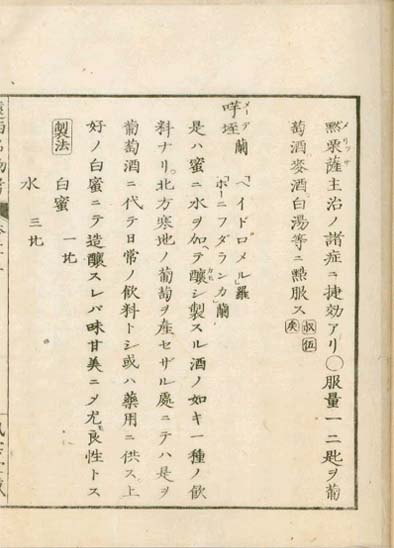 黙栗薩主治ノ諸症ニ捷効アリ〇服量一二匙ヲ葡
メリッサ
萄酒麥酒白湯等ニ點服ス
咩垤 蘭 「ヘイドロメル」羅
メーデ
「ホーニフダランカ」蘭
是ハ蜜ニ水ヲ加テ釀シ製スル酒ノ如キ一種ノ飮
料ナリ。北方寒地ノ葡萄ヲ産セザル處ニテハ是ヲ
葡萄酒ニ代テ日常ノ飮料トシ或ハ藥用ニ供ス上
好ノ白蜜ニテ造釀スレバ味甘美ニ〆尤良性トス
製法 白蜜 一比
水 三比